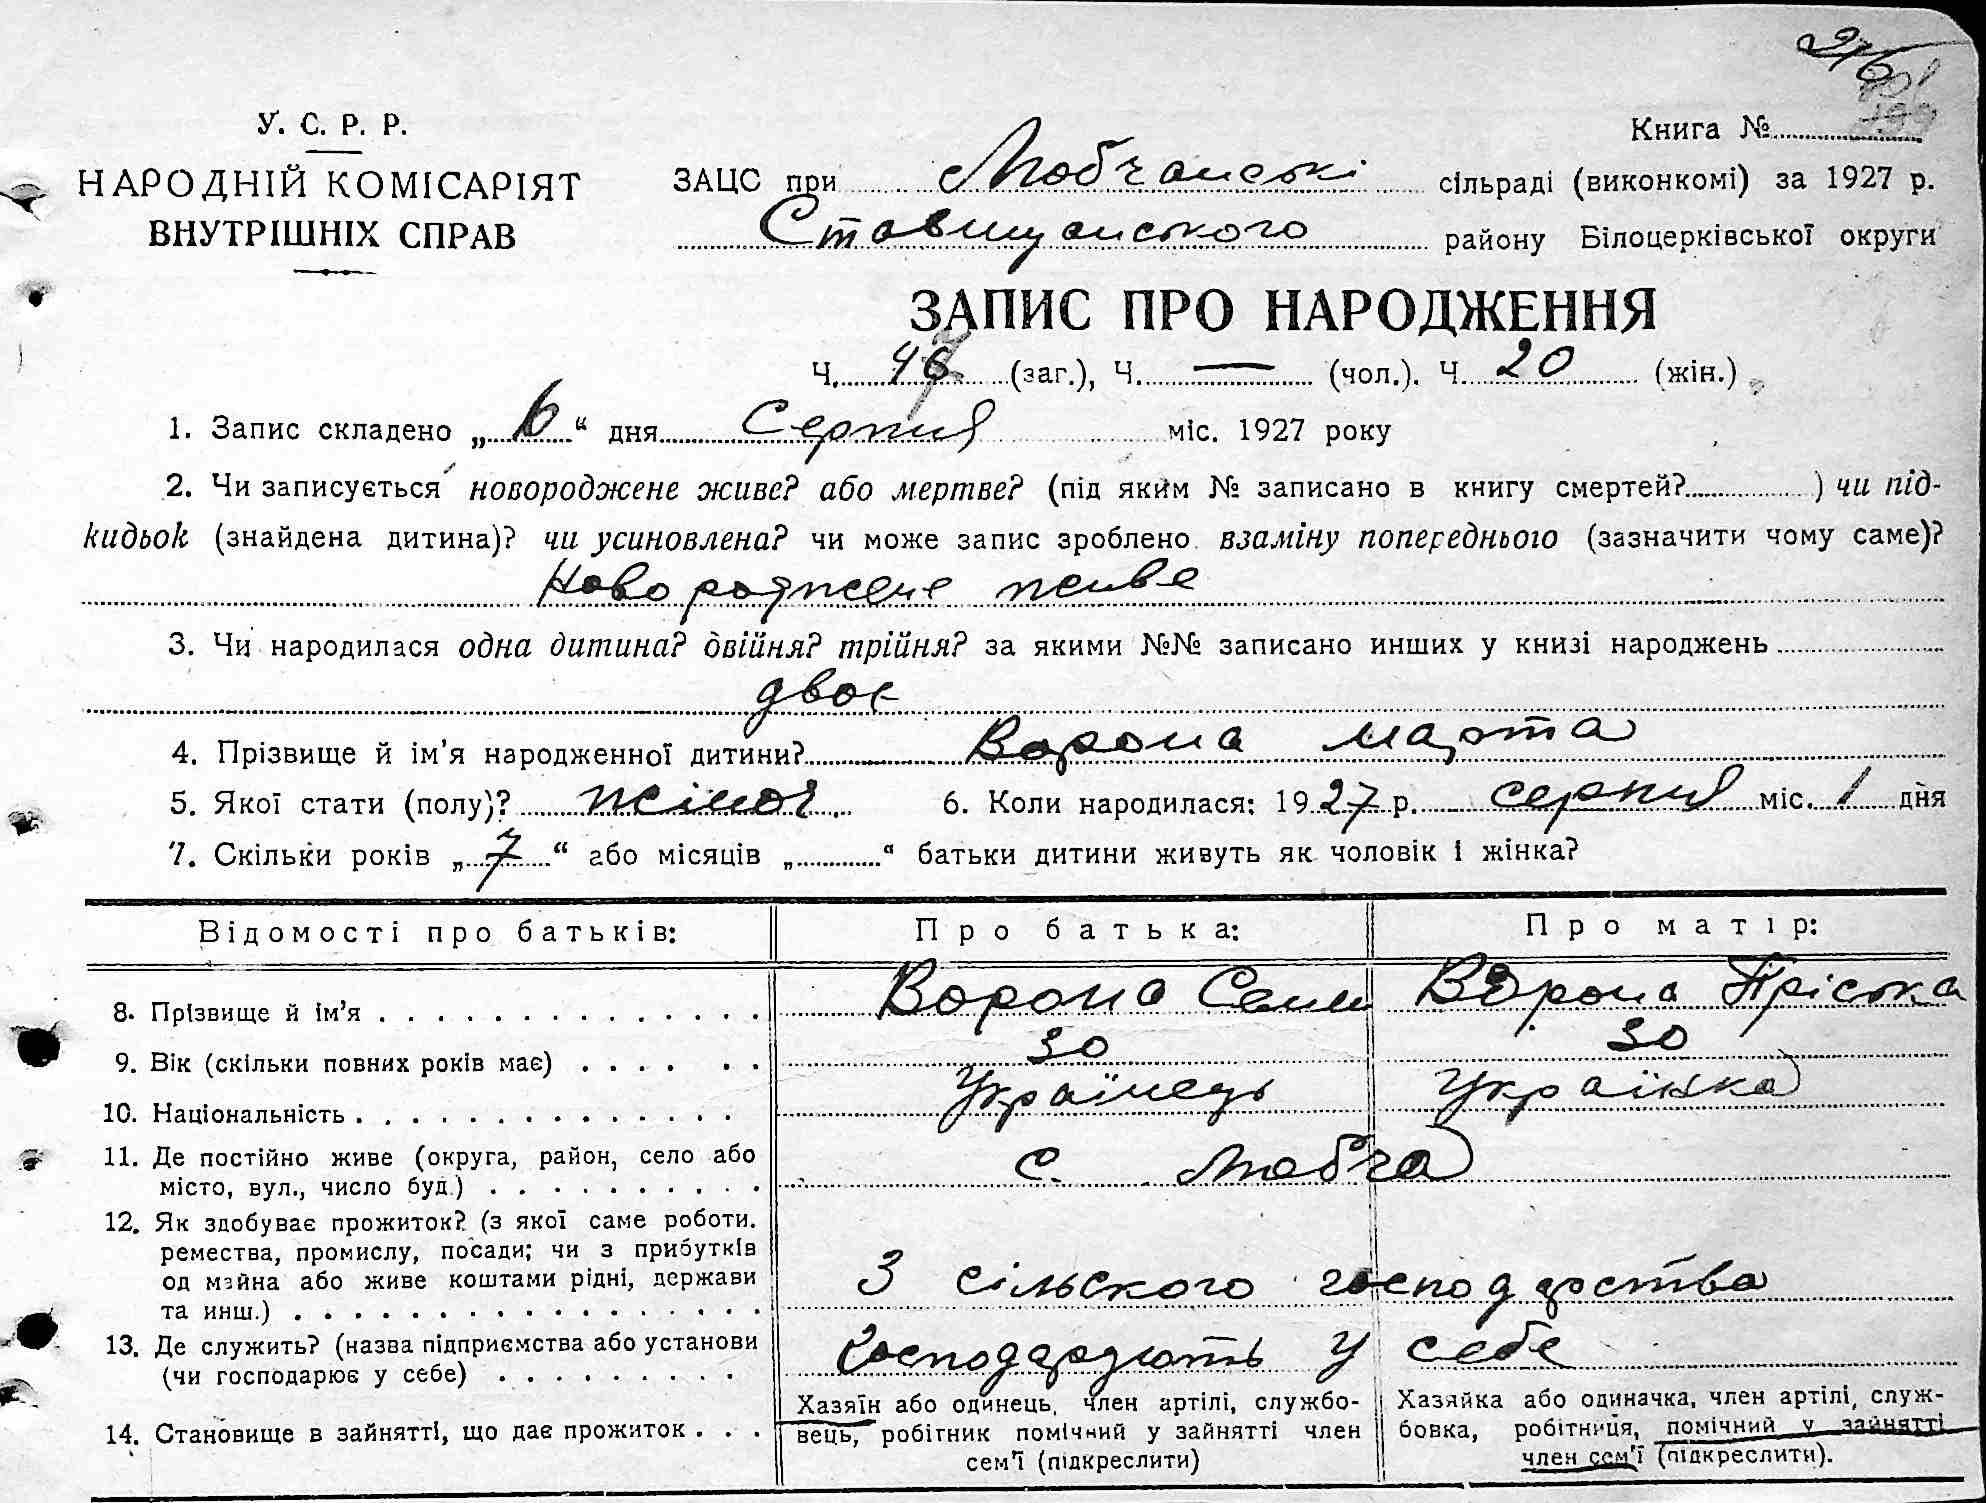 У. С. Р. Р.
НАРОДНІЙ КОМІСАРІЯТ
ВНУТРІШНІХ СПРАВ
Книга №
ЗАЦС при Любчанські сільраді (виконкомі) за 1927 р.
Ставищанського району Білоцерківської округи
ЗАПИС ПРО НАРОДЖЕННЯ
Ч. 47 (заг.), Ч. — (чол.). Ч. 20 (жін.)
1. Запис складено „6“ дня Серпня міс. 1927 року
2. Чи записується новороджене живе? або мертве? (під яким № записано в книгу смертей? ) чи під-
кидьок (знайдена дитина)? чи усиновлена? чи може запис зроблено взаміну попереднього (зазначити чому саме)?
Новороджене живе
3. Чи народилася одна дитина? двійня? трійня? за якими №№ записано инших у книзі народжень
двоє
4. Прізвище й ім’я народженної дитини? Ворона Марта
5. Якої стати (полу)? жіноч. 6. Коли народилася: 1927 р. серпня міс. 1 дня
7. Скільки років „7“ або місяців „ “ батьки дитини живуть як чоловік і жінка?
Відомості про батьків: Про батька: Про матір:
8. Прізвище й ім’я Ворона Семен Ворона Пріська
9. Вік (скільки повних років має) 30 30
10. Національність Українець Українка
11. Де постійно живе (округа, район, село або
місто, вул., число буд.) с. Любча
12. Як здобуває прожиток? (з якої саме роботи.
ремества, промислу, посади; чи з прибутків
од майна або живе коштами рідні, держави
та инш.) З сільского господарства
13. Де служить? (назва підприємства або установи
(чи господарює у себе) Господарюють у себе
14. Становище в зайнятті, що дає прожиток
Хазяїн або одинець, член артілі, службо-
вець, робітник помічний у зайнятті член
сем’ї (підкреслити)
Хазяйка або одиначка, член артілі, служ-
бовка, робітниця, помічний у зайнятті
член сем’ї (підкреслити).